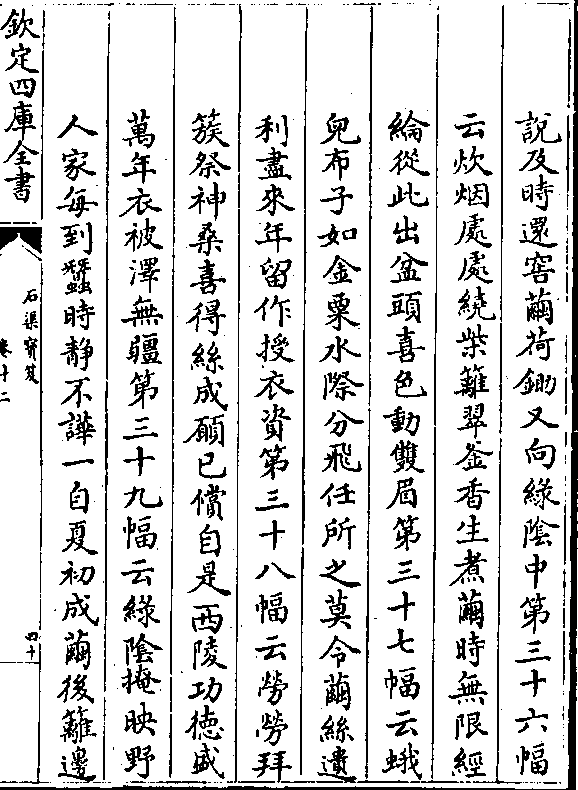 說及時還窖繭荷鋤又向綠陰中第三十六幅
云炊烟處處繞柴籬翠釜香生煮繭時無限經
綸從此出盆頭喜色動雙眉第三十七幅云蛾
兒布子如金粟水際分飛任所之莫令繭絲遺
利盡來年留作授衣資第三十八幅云勞勞拜
簇祭神桑喜得絲成願已償自是西陵功德盛
萬年衣被澤無疆第三十九幅云綠陰掩映野
人家每到蠶時靜不譁一自夏初成繭後籬邊
欽定四庫全書
石渠寶笈
卷十二
四十